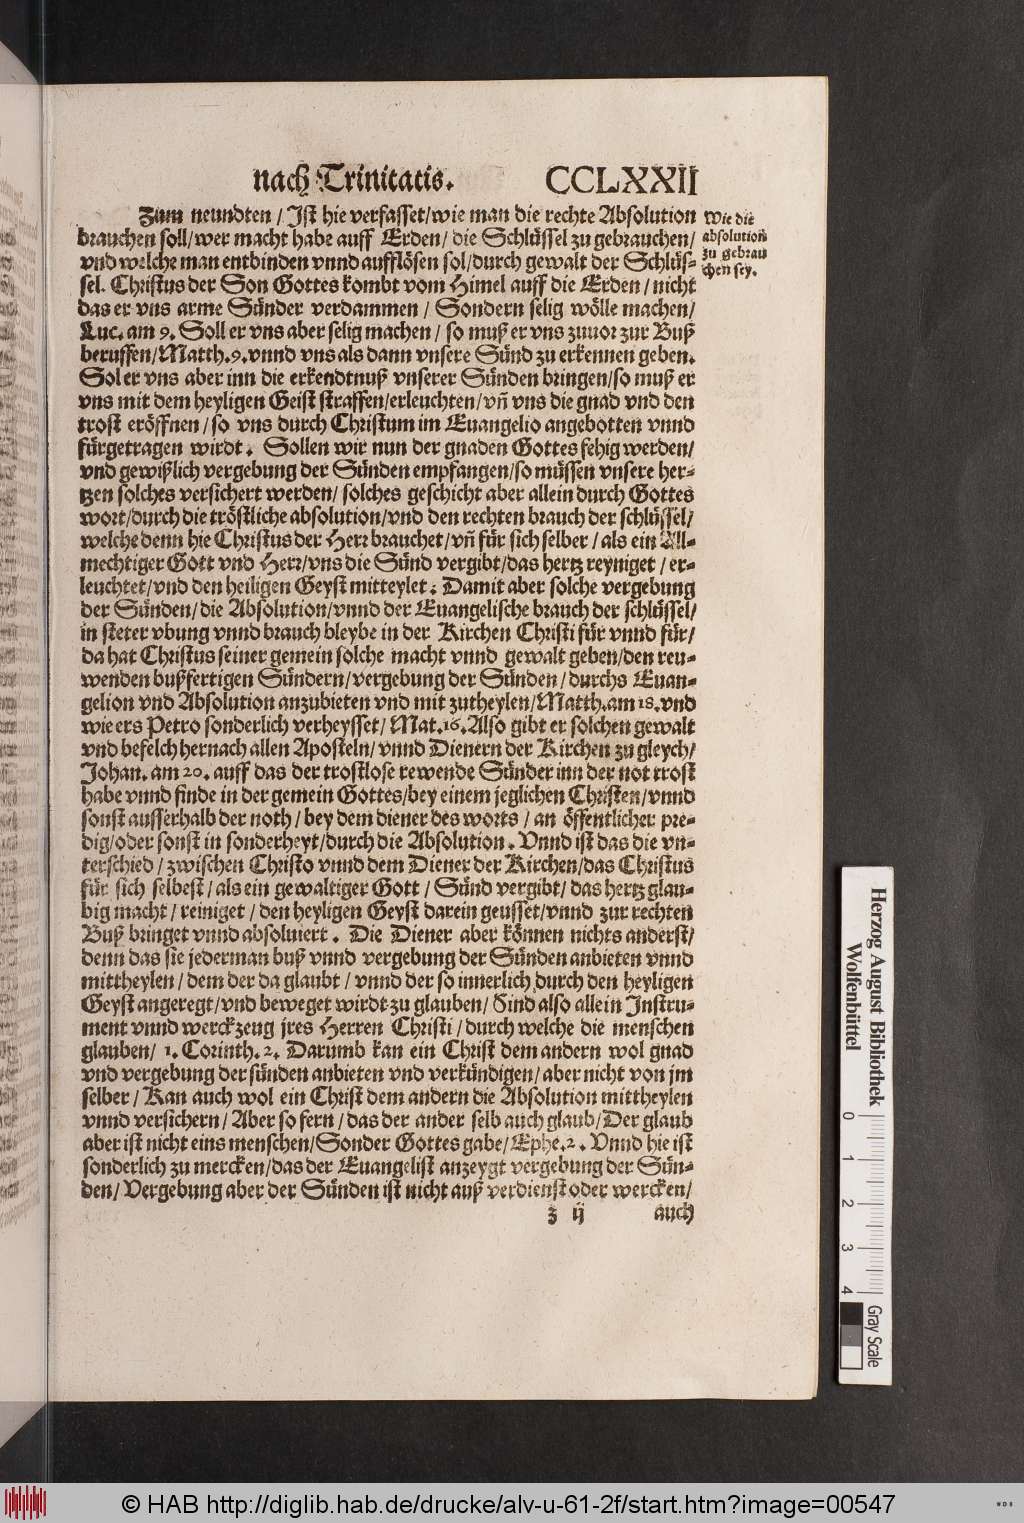 nach Trinitatis. CCLXXII
Zum neundten / Ist hie verfasset/wie man die rechte Absolution
brauchen soll/wer macht habe auff Erden/ die Schlüssel zu gebrauchen/
vnd welche man entbinden vnnd aufflösen sol/durch gewalt der Schlüs-
sel. Christus der Son Gottes kombt vom Himel auff die Erden / nicht
das er vns arme Sünder verdammen / Sondern selig wölle machen/
Luc. am 9. Soll er vns aber selig machen / so muß er vns zuuor zur Buß
beruffen/Matth.9.vnnd vns als dann vnsere Sünd zu erkennen geben.
Sol er vns aber inn die erkendtnuß vnserer Sünden bringen/so muß er
vns mit dem heyligen Geist straffen/erleuchten/vñ vns die gnad vnd den
trost eröffnen / so vns durch Christum im Euangelio angebotten vnnd
fürgetragen wirdt. Sollen wir nun der gnaden Gottes fehig werden/
vnd gewißlich vergebung der Sünden empfangen/so müssen vnsere her-
tzen solches versichert werden/ solches geschicht aber allein durch Gottes
wort/durch die tröstliche absolution/vnd den rechten brauch der schlüssel/
welche denn hie Christus der Herr brauchet/vñ für sich selber / als ein All-
mechtiger Gott vnd Herr/vns die Sünd vergibt/das hertz reyniget / er-
leuchtet/vnd den heiligen Geyst mitteylet: Damit aber solche vergebung
der Sünden/die Absolution/vnnd der Euangelische brauch der schlüssel/
in steter vbung vnnd brauch bleybe in der Kirchen Christi für vnnd für/
da hat Christus seiner gemein solche macht vnnd gewalt geben/den reu-
wenden bußfertigen Sündern/vergebung der Sünden/ durchs Euan-
gelion vnd Absolution anzubieten vnd mit zutheylen/Matth.am 18.vnd
wie ers Petro sonderlich verheysset/ Mat.16.Also gibt er solchen gewalt
vnd befelch hernach allen Aposteln/ vnnd Dienern der Kirchen zu gleych/
Johan. am 20. auff das der trostlose rewende Sünder inn der not trost
habe vnnd finde in der gemein Gottes/bey einem jeglichen Christen/vnnd
sonst ausserhalb der noth / bey dem diener des worts / an öffentlicher pre-
dig/oder sonst in sonderheyt/durch die Absolution. Vnnd ist das die vn-
terschied / zwischen Christo vnnd dem Diener der Kirchen/das Christus
für sich selbest / als ein gewaltiger Gott / Sünd vergibt/ das hertz glau-
big macht / reiniget / den heyligen Geyst darein geusset/vnnd zur rechten
Buß bringet vnnd absoluiert. Die Diener aber können nichts anderst/
denn das sie jederman buß vnnd vergebung der Sünden anbieten vnnd
mittheylen/ dem der da glaubt / vnnd der so innerlich durch den heyligen
Geyst angeregt/vnd beweget wirdt zu glauben/ Sind also allein Instru-
ment vnnd werckzeug jres Herren Christi / durch welche die menschen
glauben/ 1. Corinth. 2. Darumb kan ein Christ dem andern wol gnad
vnd vergebung der sünden anbieten vnd verkündigen/ aber nicht von jm
selber / Kan auch wol ein Christ dem andern die Absolution mittheylen
vnnd versichern/ Aber so fern / das der ander selb auch glaub/Der glaub
aber ist nicht eins menschen/Sonder Gottes gabe/Ephe.2. Vnnd hie ist
sonderlich zu mercken/das der Euangelist anzeygt vergebung der Sün-
den/ Vergebung aber der Sünden ist nicht auß verdienst oder wercken/
z ij auch
Wie die
absolution
zu gebrau
chen sey.
Herzog August Bibliothek
Wolfenbüttel
0 1 2 3 4
Gray Scale
© HAB http://diglib.hab.de/drucke/alv-u-61-2f/start.htm?image=00547